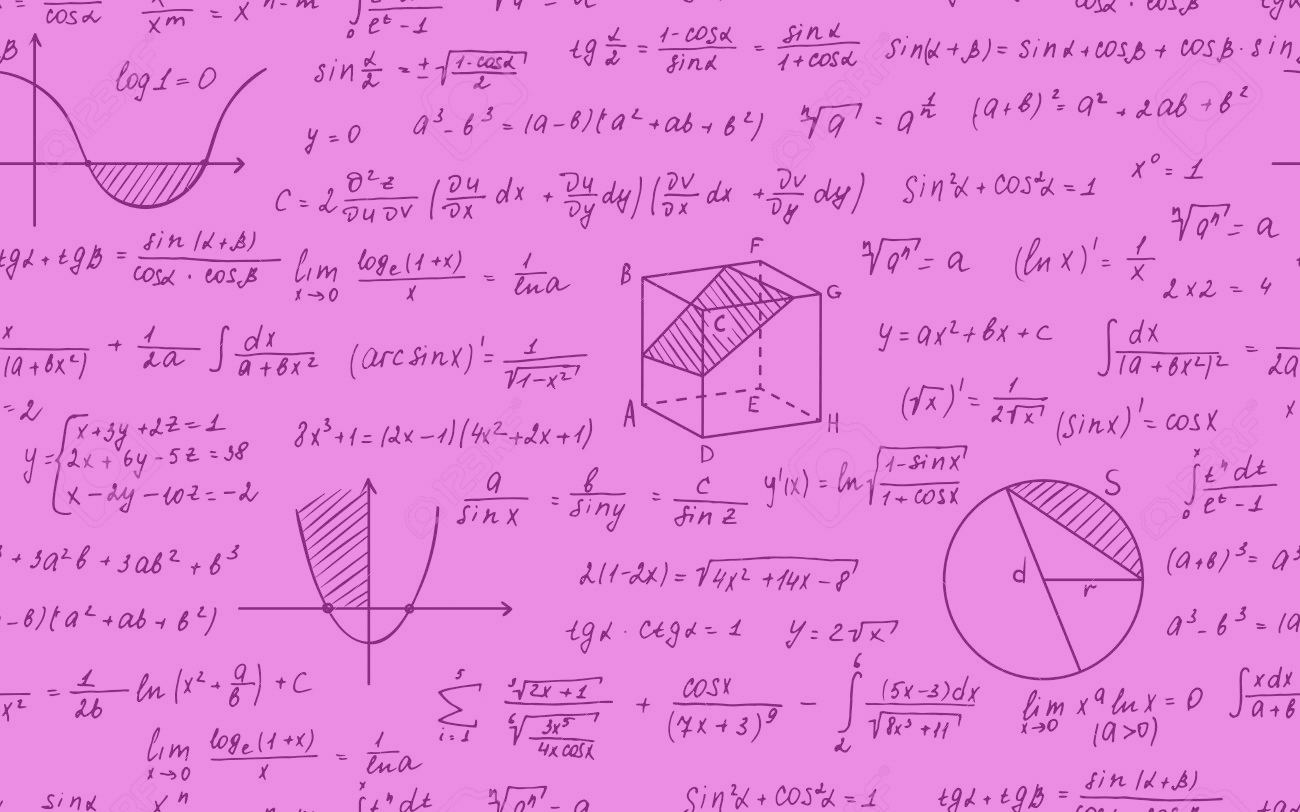 cosα
x^m
= x^n-m
e^t - 1
β
log 1 = 0
sin α/2 = ± √((1 - cosα)/2)
tg α/2 = (1 - cosα)/sinα = sinα/(1 + cosα)
sin(α + β) = sinα + cosβ + cosβ · sin
y = 0
a³ - b³ = (a - b)(a² + ab + b²)
ⁿ√a = a^(1/n)
(a + b)² = a² + 2ab + b²
C = 2 ∂²z/∂u∂v (∂u/∂x dx + ∂u/∂y dy)(∂v/∂x dx + ∂v/∂y dy)
sin²α + cos²α = 1
x⁰ = 1
ⁿ√aⁿ = a
tgα + tgβ = sin(α + β)/(cosα · cosβ)
lim x→0 log_e(1 + x)/x = 1/ln a
B F G C A E H D
ⁿ√aⁿ = a
(ln x)' = 1/x
2 x 2 = 4
x/(a + bx²) + 1/2a ∫ dx/(a + bx²)
(arcsin x)' = 1/√(1 - x²)
y = ax² + bx + c
∫ dx/(a + bx²)² =
2a
= 2
(√x)' = 1/(2√x)
(sin x)' = cos x
x
y = { x + 3y + 2z = 1
2x + 6y - 5z = 38
x - 2y - 10z = -2
8x³ + 1 = (2x - 1)(4x² + 2x + 1)
a/sin x = b/sin y = c/sin z
y'(x) = ln √((1 - sin x)/(1 + cos x))
S
d
r
∫₀ˣ tⁿ dt/(e^t - 1)
+ 3a²b + 3ab² + b³
2(1 - 2x) = √(4x² + 14x - 8)
(a + b)³ = a³
- b)(a² + ab + b²)
tgα · ctgα = 1
y = 2√x
a³ - b³ = (a
x² = 1/2b ln(x² + a/b) + C
∑ 5 i = 1 ³√(2x + 1)/⁶√(3x⁵/4x cos x) + cos x/(7x + 3)⁹ - ∫₂⁶ (5x - 3)dx/√(8x³ + 11)
lim x→0 x^a ln x = 0
(a > 0)
∫ x dx/a + b
lim x→0 log_e(1 + x)/x = 1/ln a
sinα
xⁿ
∫ˣ tⁿ dt
ⁿ√aⁿ = a
sin²α + cos²α = 1
tgα + tgβ = sin(α + β)